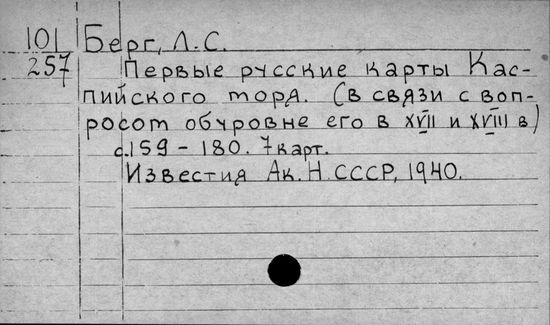 101 Берг, Л.С.
257 Первые русские карты Кас-
пийского моря. (в связи с воп-
росом об уровне его в XVII и XVIII в)
с.159 - 180. 7 карт.
Известия Ак. Н. СССР, 1940.